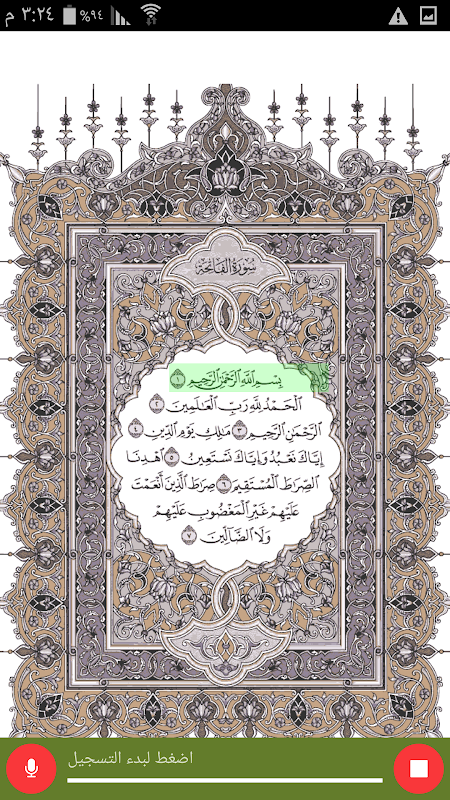 ٣:٢٤ م ٩٤%
سُورَةُ الْفَاتِحَةِ
بِسْمِ اللَّهِ الرَّحْمَٰنِ الرَّحِيمِ ١
الْحَمْدُ لِلَّهِ رَبِّ الْعَالَمِينَ ٢
الرَّحْمَٰنِ الرَّحِيمِ ٣ مَالِكِ يَوْمِ الدِّينِ ٤
إِيَّاكَ نَعْبُدُ وَإِيَّاكَ نَسْتَعِينُ ٥ اهْدِنَا
الصِّرَاطَ الْمُسْتَقِيمَ ٦ صِرَاطَ الَّذِينَ أَنْعَمْتَ
عَلَيْهِمْ غَيْرِ الْمَغْضُوبِ عَلَيْهِمْ
وَلَا الضَّالِّينَ ٧
اضغط لبدء التسجيل